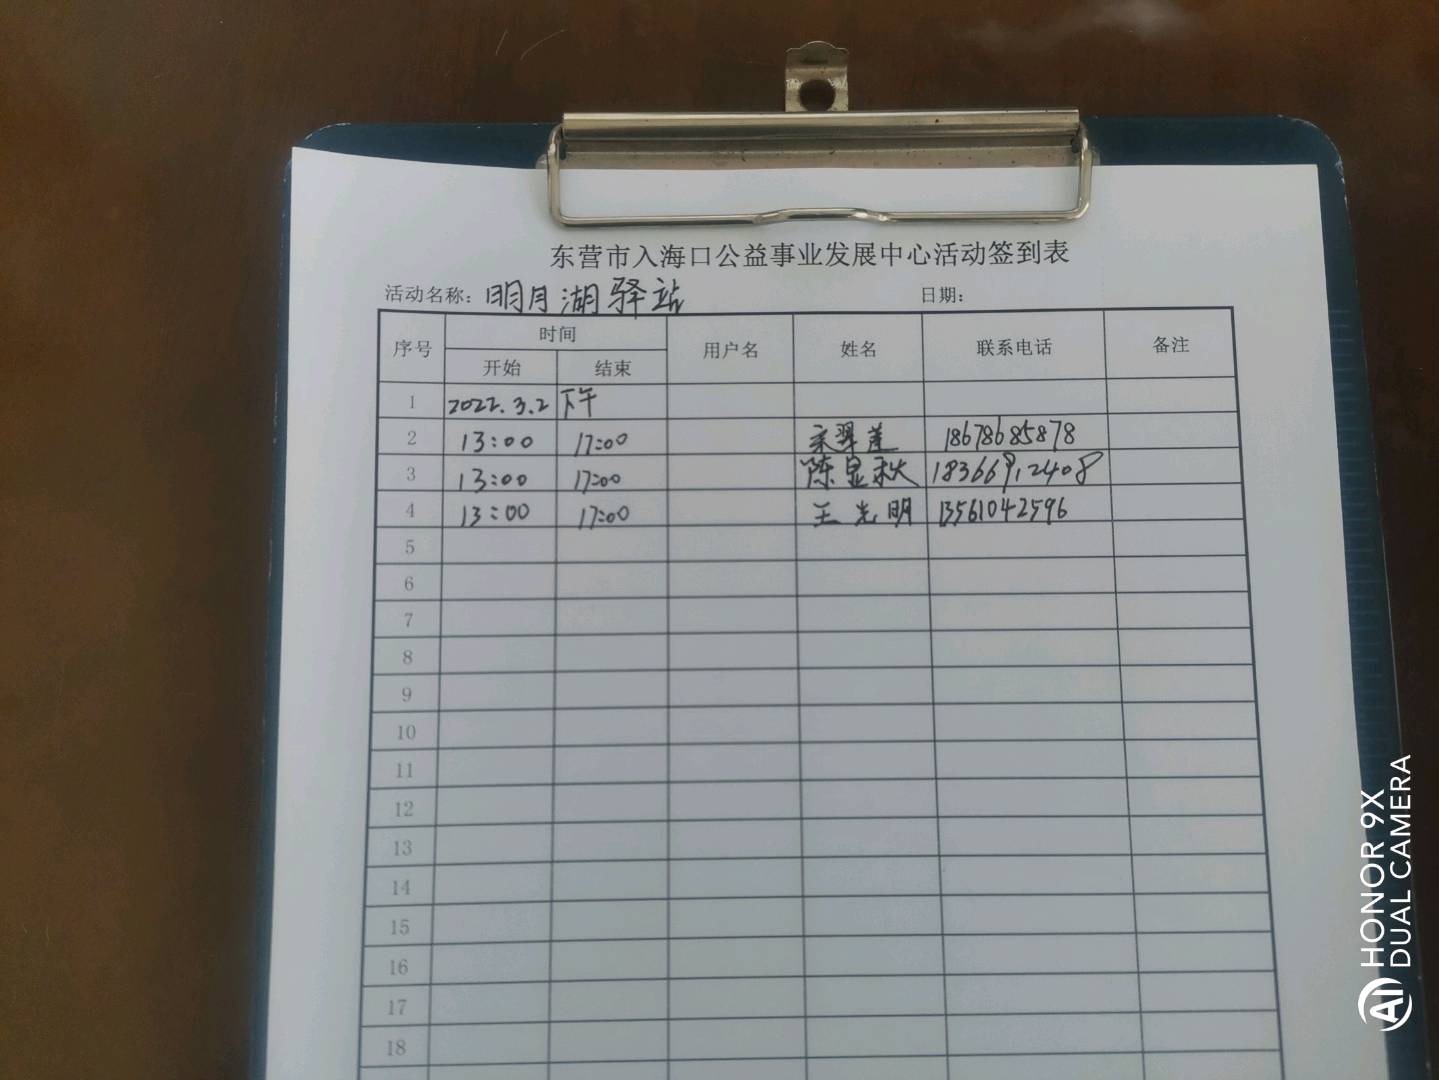 东营市入海口公益事业发展中心活动签到表
活动名称：明月湖驿站 日期：
序号 时间 用户名 姓名 联系电话 备注
开始 结束
1 2022.3.2 下午
2 13:00 17:00 宋翠莲 18678685878
3 13:00 17:00 陈显秋 18366912408
4 13:00 17:00 王光明 13561042596
5
6
7
8
9
10
11
12
13
14
15
16
17
18
AI HONOR 9X
DUAL CAMERA